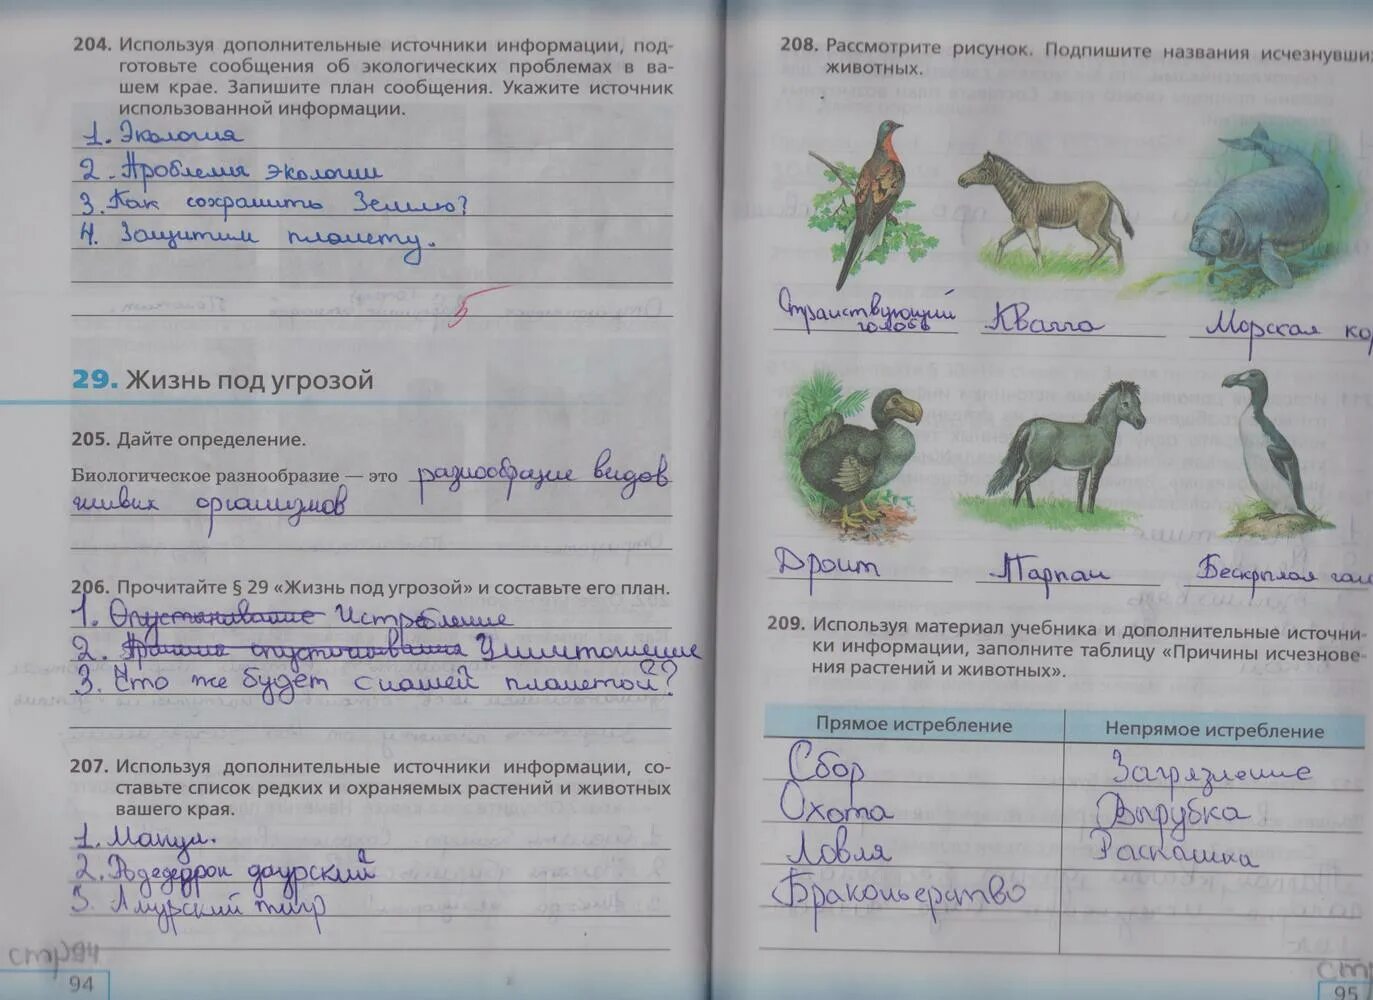 204. Используя дополнительные источники информации, под-
готовьте сообщения об экологических проблемах в ва-
шем крае. Запишите план сообщения. Укажите источник
использованной информации.
1. Экология
2. Проблемы экологии
3. Как сохранить Землю?
4. Защитим планету.
5
29. Жизнь под угрозой
205. Дайте определение.
Биологическое разнообразие — это разнообразие видов
живых организмов
206. Прочитайте § 29 «Жизнь под угрозой» и составьте его план.
1. Опустынивание Истребление
2. Уничтожение
3. Что же будет с нашей планетой?
207. Используя дополнительные источники информации, со-
ставьте список редких и охраняемых растений и животных
вашего края.
1. Манул.
2. даурский
3. Амурский тигр
стр94
94
208. Рассмотрите рисунок. Подпишите названия исчезнувши
животных.
Странствующий
голубь
Квагга
Морская ко
Дронт
Тарпан
Бескрылая гаг
209. Используя материал учебника и дополнительные источни-
ки информации, заполните таблицу «Причины исчезнове-
ния растений и животных».
Прямое истребление Непрямое истребление
Сбор Загрязнение
Охота Вырубка
Ловля Распашка
Браконьерство
стр
95